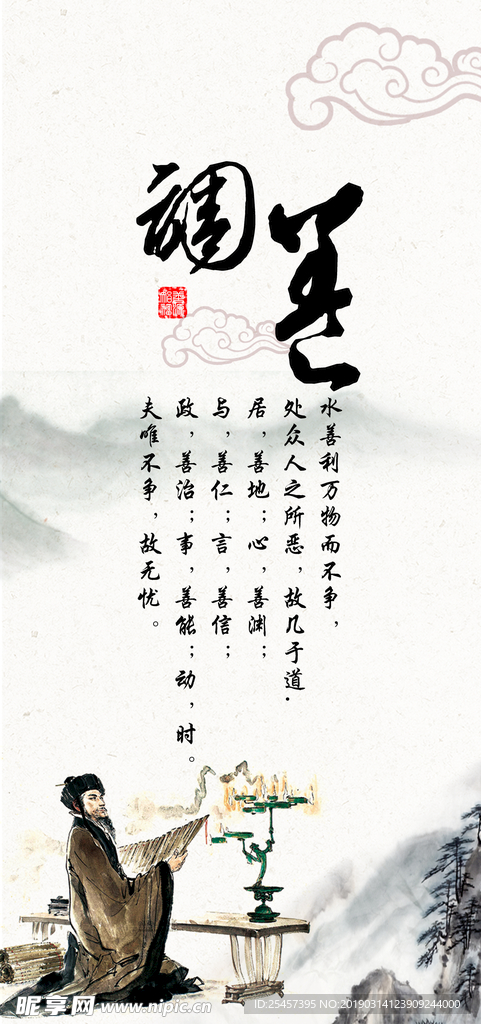 善
調
水善利万物而不争，
处众人之所恶，故几于道.
居，善地；心，善渊；
与，善仁；言，善信；
政，善治；事，善能；动，时。
夫唯不争，故无忧。
昵享网 www.nipic.cn
ID:25457395 NO:20190314123909244000